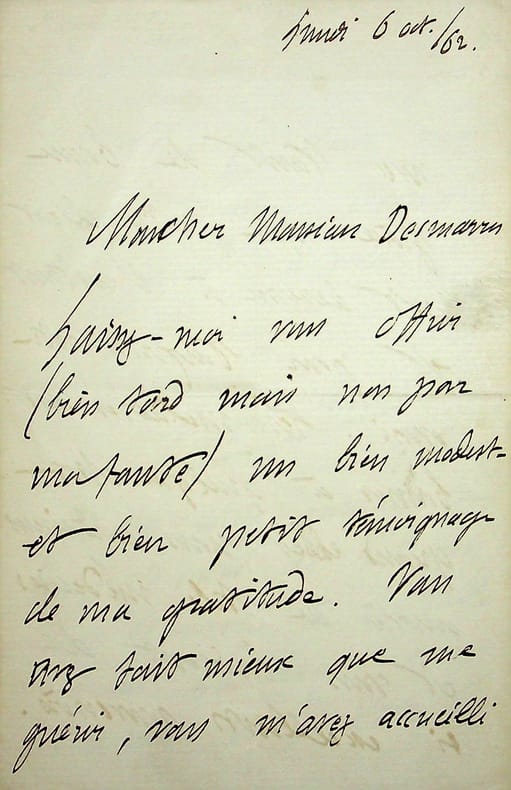 Lundi 6 oct. /62.
Mon cher Monsieur Desmarres
Laissez-moi vous offrir
(bien tard mais non par
ma faute) un bien modeste
et bien petit témoignage
de ma gratitude. Vous
avez fait mieux que me
guérir, vous m'avez accueilli